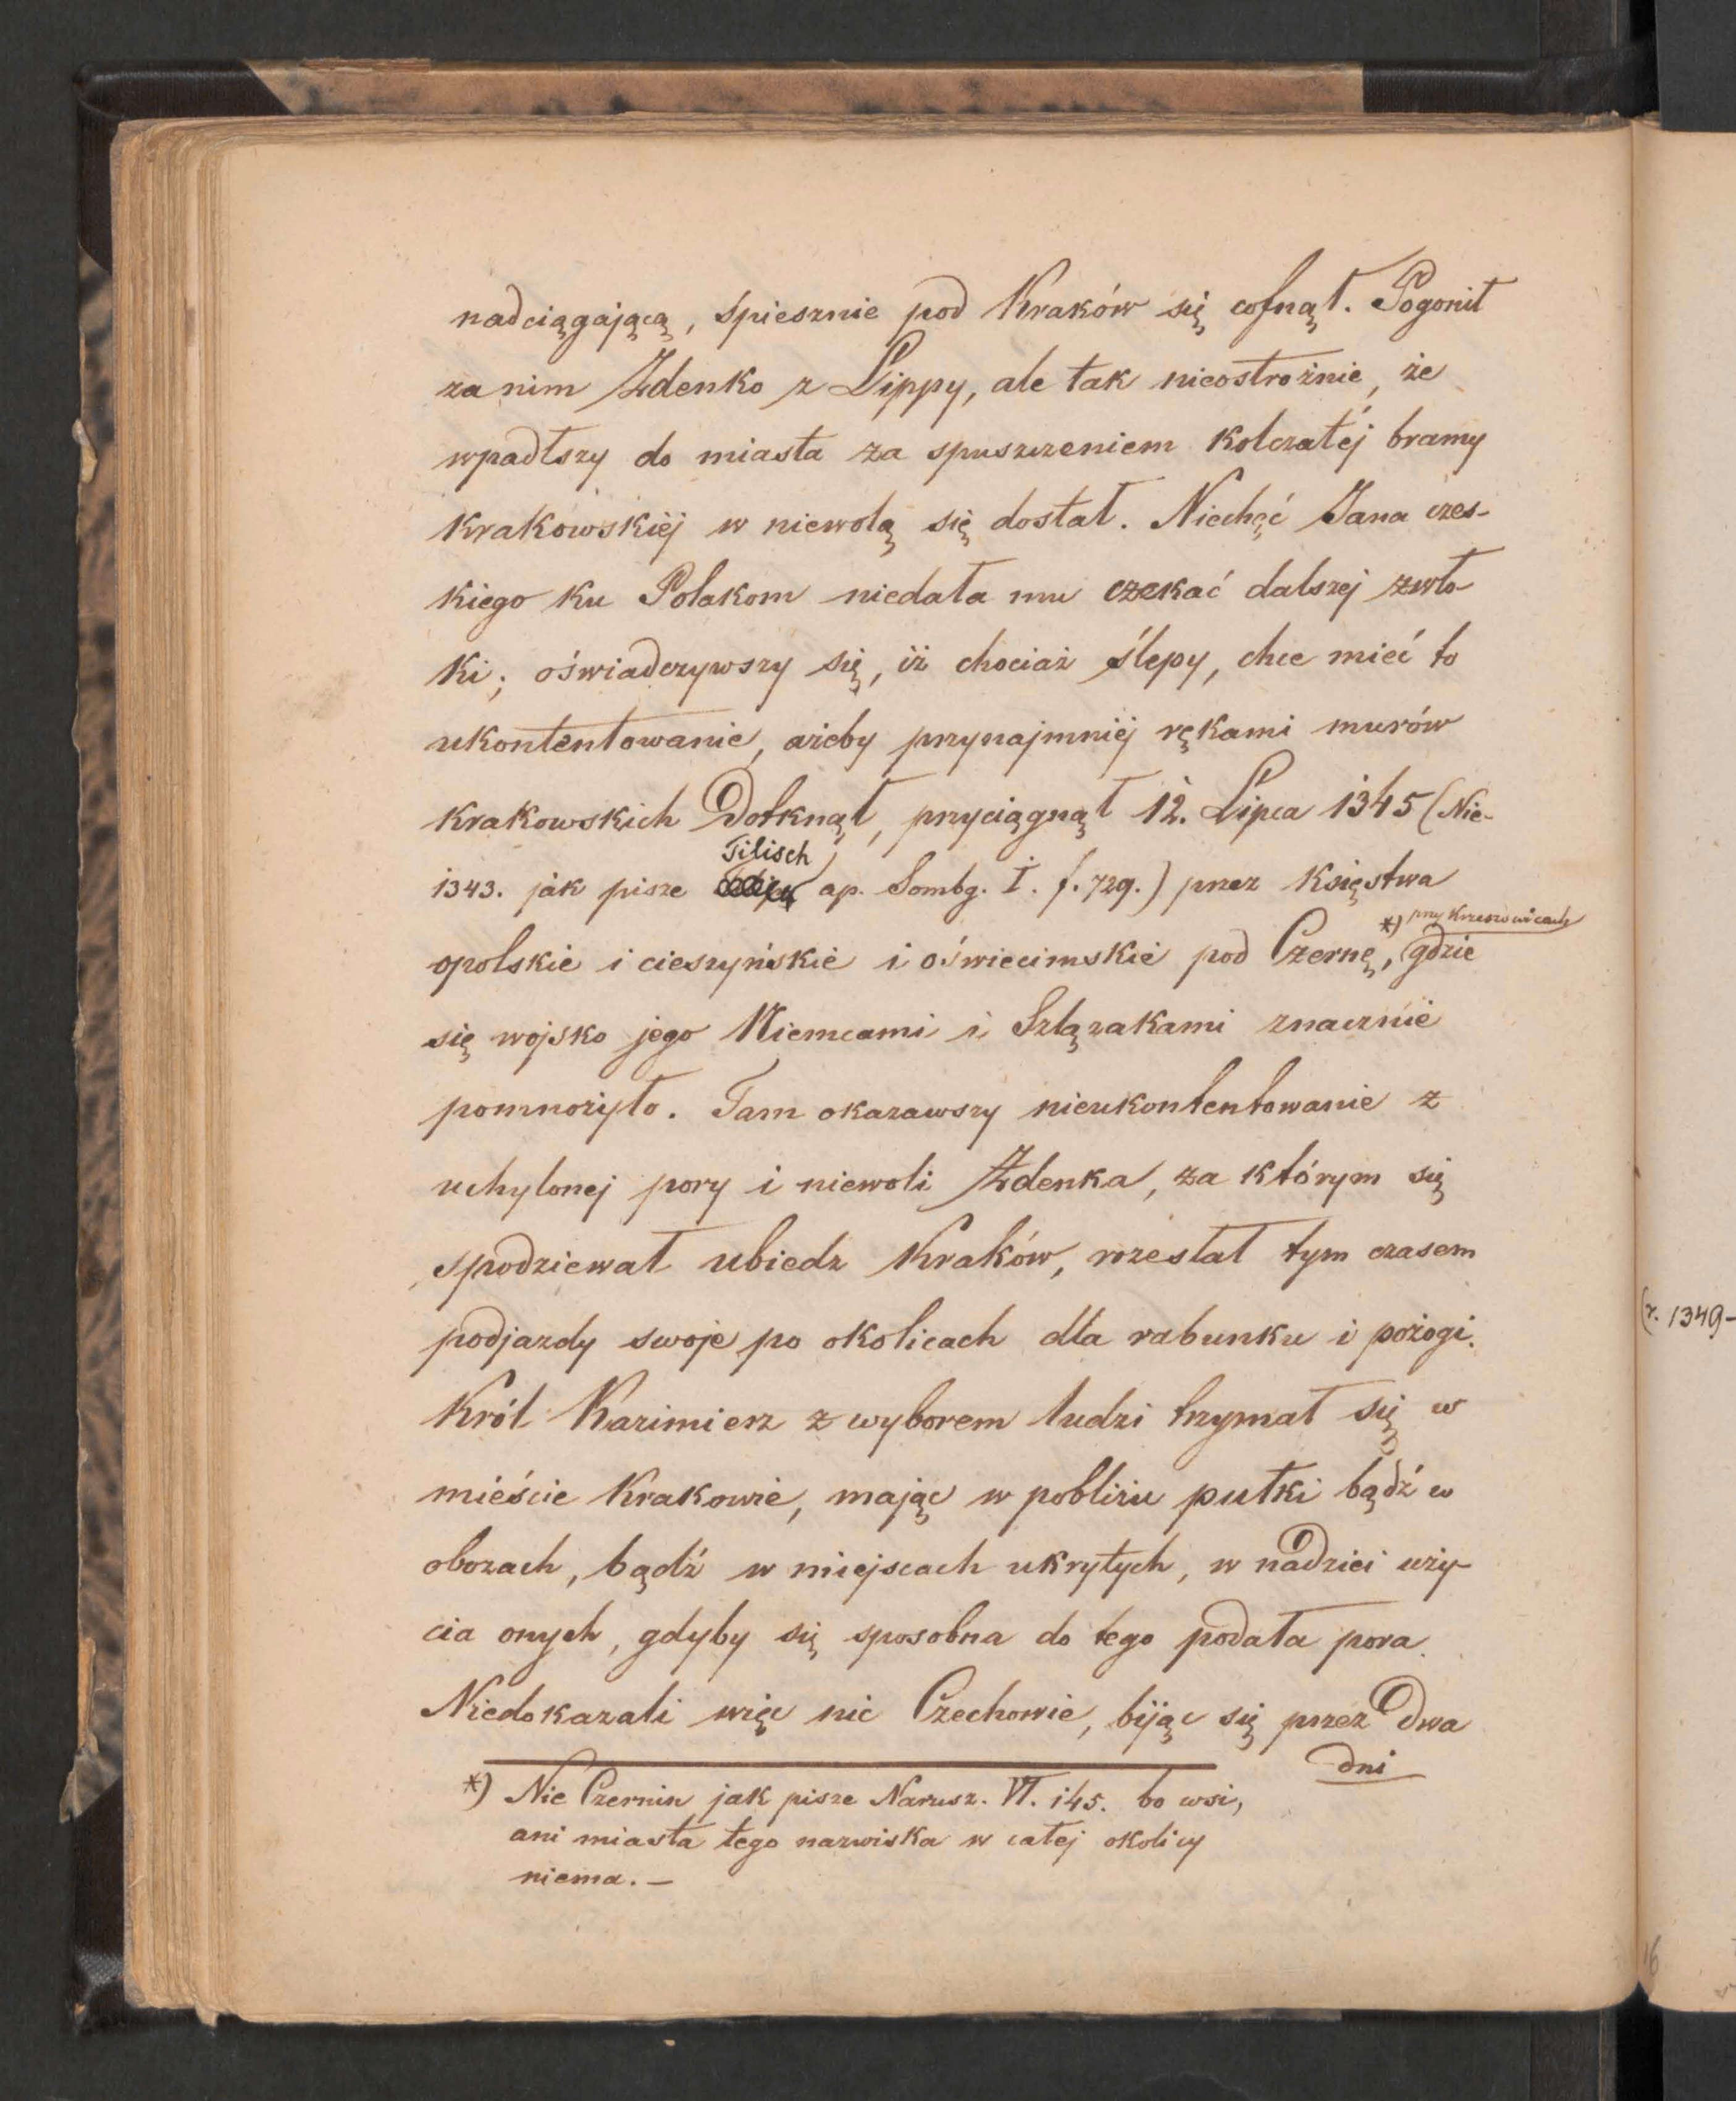 nadciągającą, spiesznie pod Kraków się cofnął. Pogonił
za nim Zdenko z Lippy, ale tak nieostrożnie, że
wpadłszy do miasta za spuszczeniem kolczatéj bramy
krakowskiéj w niewolą się dostał. Niechęć Jana czes-
kiego ku Polakom niedała mu czekać dalszej zwło-
ki; oświadczywszy się, iż chociaż ślepy, chce mieć to
ukontentowanie, ażeby przynajmniéj rękami murów
krakowskich dotknął, przyciągnął 12. Lipca 1345 (Nie-
Tilisch
1343. jak pisze ap. Sombg. I. f. 729.) przez księstwa
*) przy Krzeszowicach
opolskie i cieszyńskie i oświecimskie pod Czernę, gdzie
się wojsko jego Niemcami i Szlązakami znacznie
pomnożyło. Tam okazawszy nieukontentowanie z
uchylonej pory i niewoli Zdenka, za którym się
spodziewał ubiedz Kraków, rozesłał tym czasem
podjazdy swoje po okolicach dla rabunku i pożogi.
Król Kazimierz z wyborem ludzi trzymał się w
mieście Krakowie, mając w pobliżu pułki bądź w
obozach, bądź w miejscach ukrytych, w nadziei uży-
cia onych, gdyby się sposobna do tego podała pora.
Niedokazali więc nic Czechowie, bijąc się przez dwa
dni
*) Nie Czernin jak pisze Narusz. VI. 145. bo wsi,
ani miasta tego nazwiska w całej okolicy
niema. —
(r. 1349-